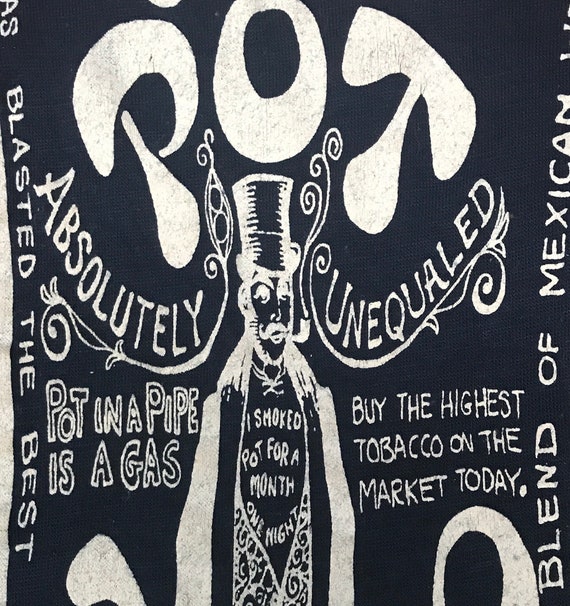 POT
ABSOLUTELY
UNEQUALED
POT IN A PIPE
IS A GAS
I SMOKED
POT FOR A
MONTH
ONE NIGHT
BUY THE HIGHEST
TOBACCO ON THE
MARKET TODAY.
AS BLASTED THE BEST
BLEND OF MEXICAN